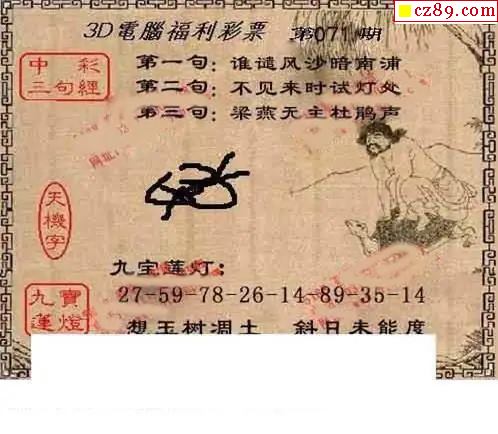 cz89.com
3D電腦福利彩票 第071期
中彩三句經
第一句：谁谴风沙暗南浦
第二句：不见来时试灯处
第三句：梁燕无主杜鹃声
天機字
九宝莲灯：
九寶蓮燈
27-59-78-26-14 89-35-14
想玉树凋土 斜日未能度